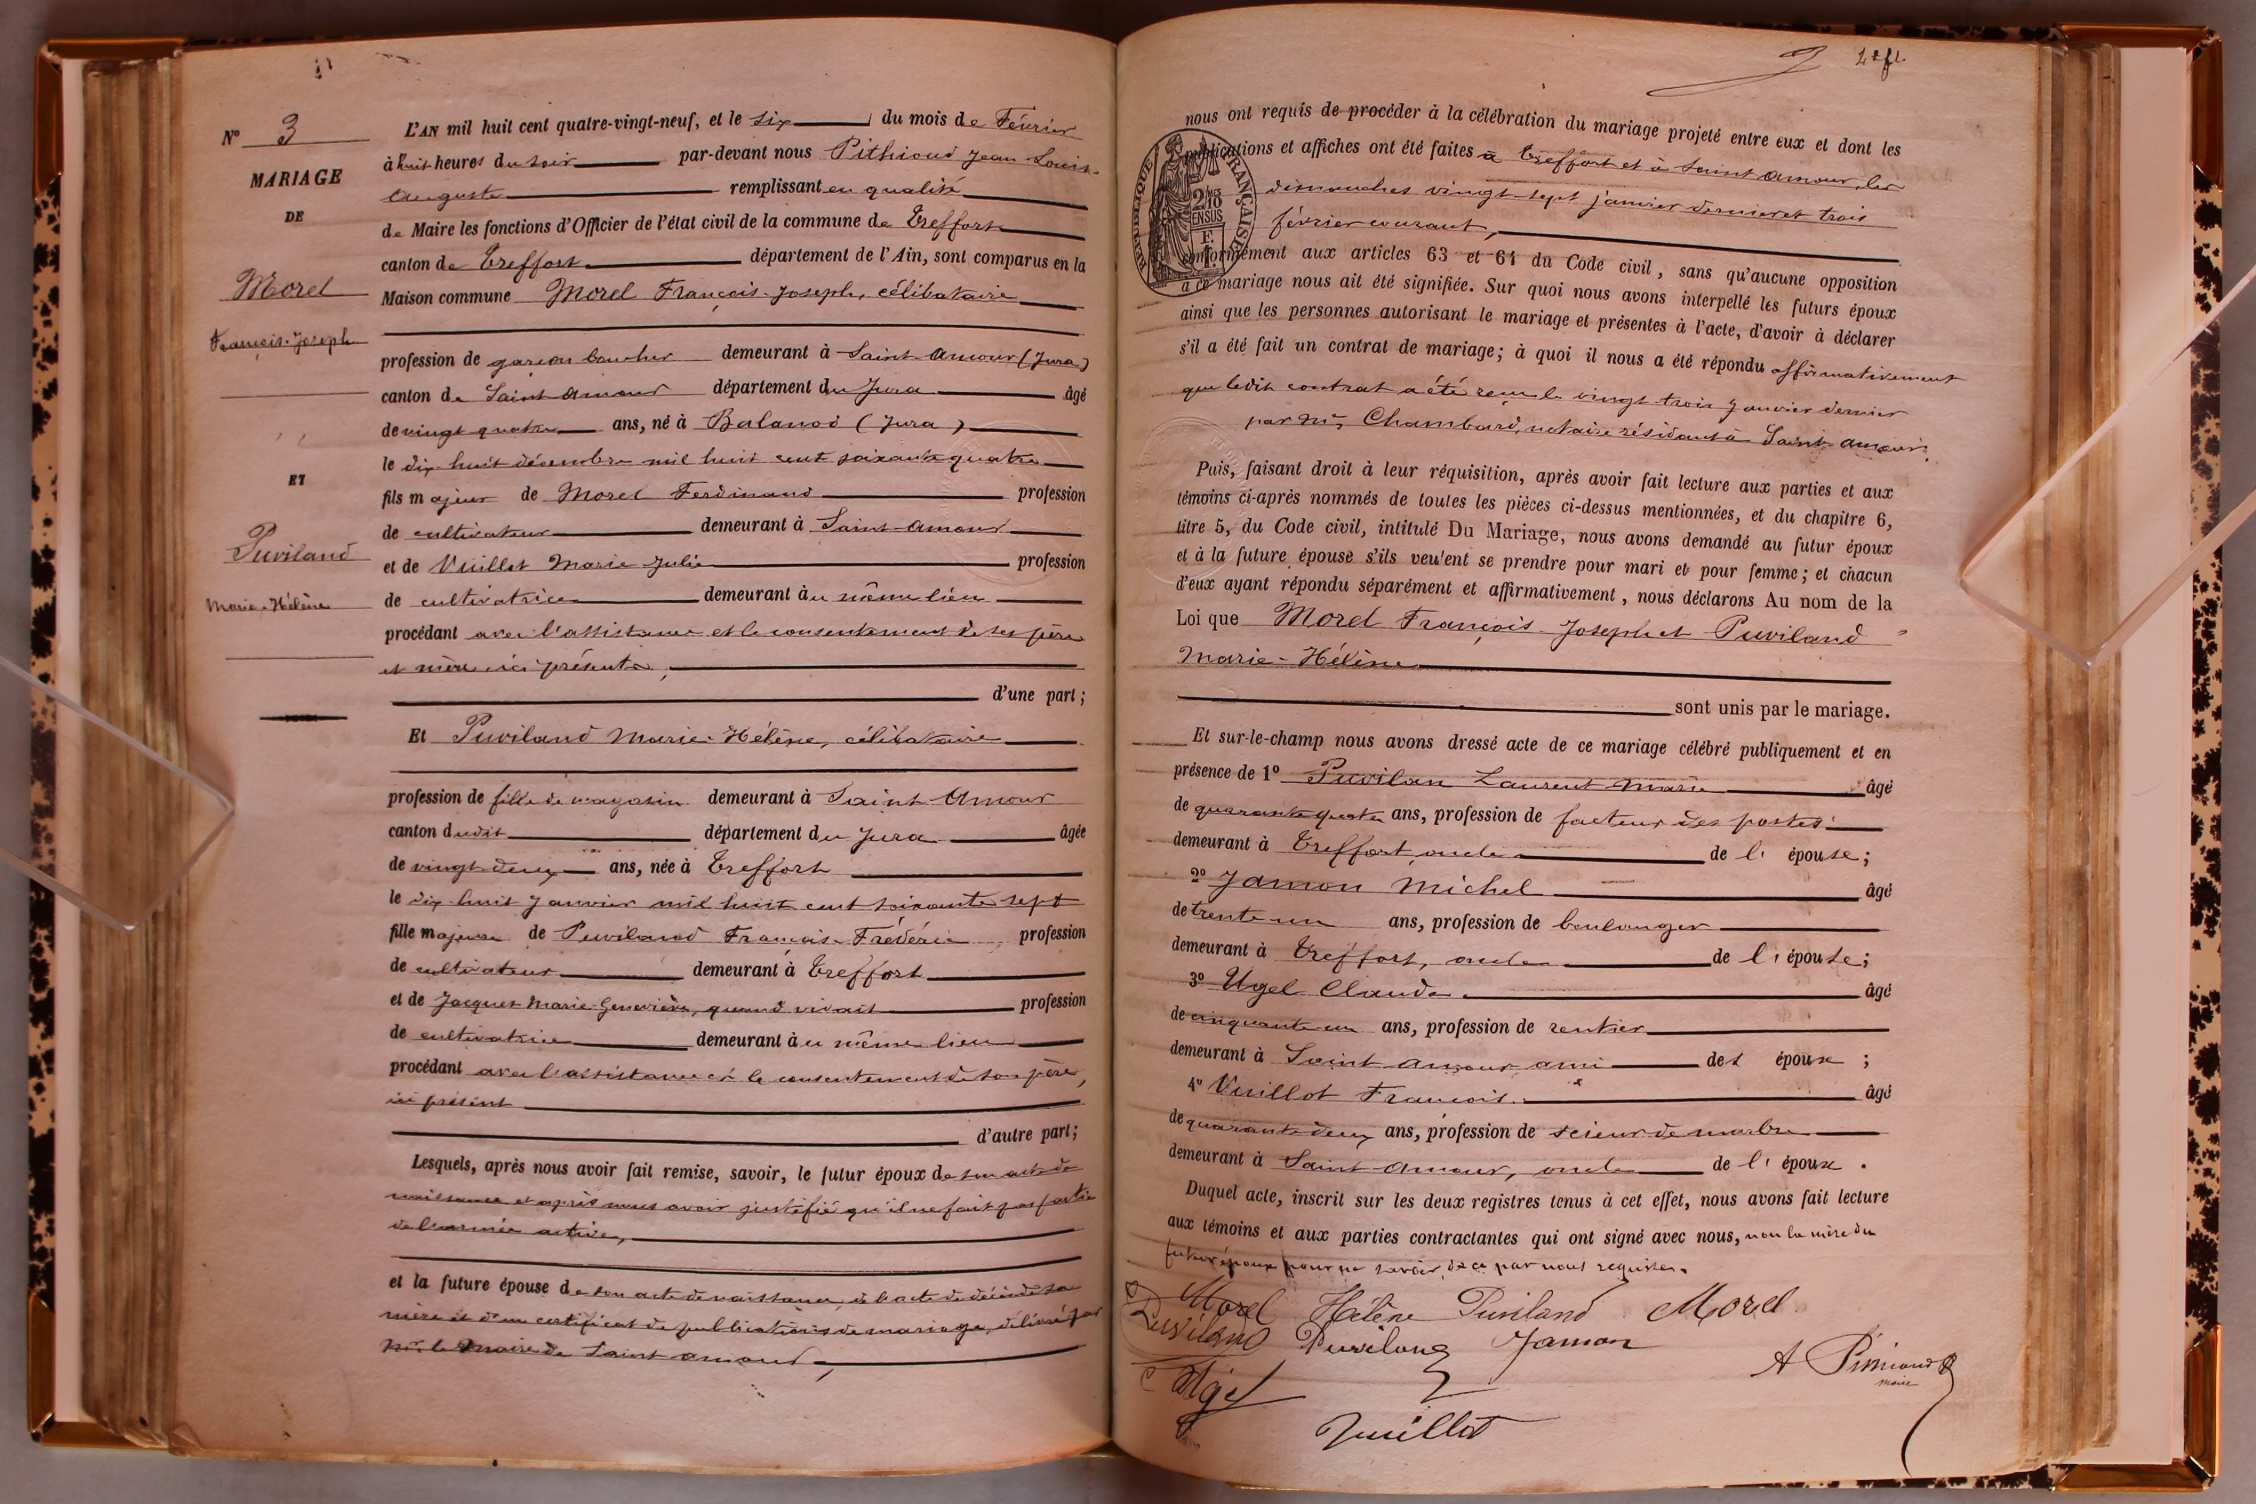 N° 3
MARIAGE
DE
Morel
François-Joseph
ET
Puviland
Marie-Hélène
L'AN mil huit cent quatre-vingt-neuf, et le six du mois de Février
à huit heures du soir par-devant nous Pithioud Jean-Louis-
Auguste remplissant en qualité
de Maire les fonctions d'Officier de l'état civil de la commune de Treffort
canton de Treffort département de l'Ain, sont comparus en la
Maison commune Morel François-Joseph, célibataire
profession de garçon boucher demeurant à Saint-Amour (Jura)
canton de Saint-Amour département du Jura âgé
de vingt quatre ans, né à Balanod (Jura)
le dix-huit décembre mil huit cent soixante quatre
fils majeur de Morel Ferdinand profession
de cultivateur demeurant à Saint-Amour
et de Vuillot Marie-Julie profession
de cultivatrice demeurant au même lieu
procédant avec l'assistance et le consentement de ses père
et mère ici présents,
d'une part;
Et Puviland Marie-Hélène, célibataire
profession de fille de magasin demeurant à Saint-Amour
canton dudit département du Jura âgée
de vingt-deux ans, née à Treffort
le dix-huit janvier mil huit cent soixante sept
fille majeure de Puviland François-Frédéric profession
de cultivateur demeurant à Treffort
et de Jacquet Marie-Geneviève, quand vivait profession
de cultivatrice demeurant au même lieu
procédant avec l'assistance et le consentement de son père,
ici présent
d'autre part;
Lesquels, après nous avoir fait remise, savoir, le futur époux de son acte de
naissance et après nous avoir justifié qu'il ne fait pas partie
de l'armée active,
et la future épouse de son acte de naissance, de l'acte de décès de sa
mère et d'un certificat de publications de mariage, délivré par
Mr le Maire de Saint-Amour,
nous ont requis de procéder à la célébration du mariage projeté entre eux et dont les
publications et affiches ont été faites à Treffort et à Saint Amour, les
dimanches vingt-sept janvier dernier et trois
février courant,
conformément aux articles 63 et 64 du Code civil, sans qu'aucune opposition
à ce mariage nous ait été signifiée. Sur quoi nous avons interpellé les futurs époux
ainsi que les personnes autorisant le mariage et présentes à l'acte, d'avoir à déclarer
s'il a été fait un contrat de mariage; à quoi il nous a été répondu affirmativement
que ledit contrat a été reçu le vingt trois janvier dernier
par Me Chambard, notaire résidant à Saint-Amour.
Puis, faisant droit à leur réquisition, après avoir fait lecture aux parties et aux
témoins ci-après nommés de toutes les pièces ci-dessus mentionnées, et du chapitre 6,
titre 5, du Code civil, intitulé Du Mariage, nous avons demandé au futur époux
et à la future épouse s'ils veulent se prendre pour mari et pour femme; et chacun
d'eux ayant répondu séparément et affirmativement, nous déclarons Au nom de la
Loi que Morel François-Joseph et Puviland
Marie-Hélène
sont unis par le mariage.
Et sur-le-champ nous avons dressé acte de ce mariage célébré publiquement et en
présence de 1° Puvilan Laurent-Marie âgé
de quarante quatre ans, profession de facteur des postes
demeurant à Treffort, oncle de l'épouse;
2° Jamon Michel âgé
de trente-un ans, profession de boulanger
demeurant à Treffort, oncle de l'épouse;
3° Ugel Claude âgé
de cinquante un ans, profession de rentier
demeurant à Saint Amour ami des époux;
4° Vuillot François âgé
de quarante-deux ans, profession de scieur de marbre
demeurant à Saint-Amour, oncle de l'époux.
Duquel acte, inscrit sur les deux registres tenus à cet effet, nous avons fait lecture
aux témoins et aux parties contractantes qui ont signé avec nous, non la mère du
futur époux pour ne savoir, de ce par nous requise.
Morel Hélène Puviland Morel
Puviland Puviland Jamon
Ugel
Vuillot
maire
RÉPUBLIQUE FRANÇAISE